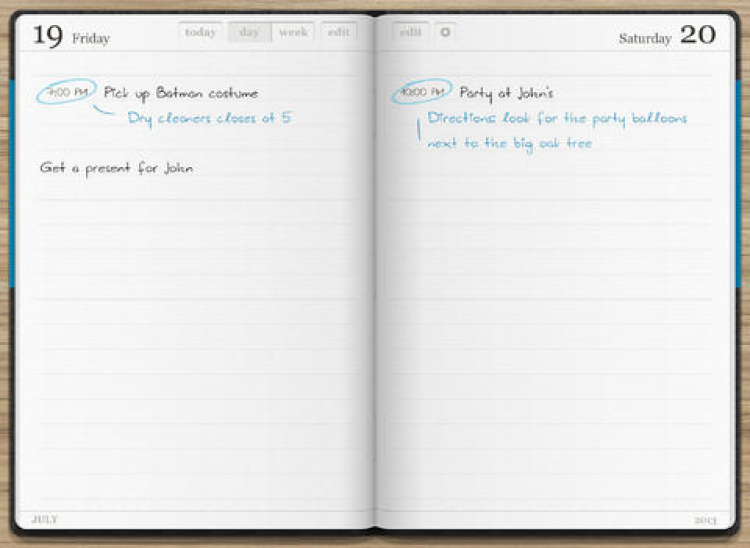 19 Friday
today day week edit
Pick up Batman costume
Dry cleaners closes at 5
Get a present for John
JULY
edit
Saturday 20
10:00 PM Party at John's
Directions: look for the party balloons
next to the big oak tree
2013